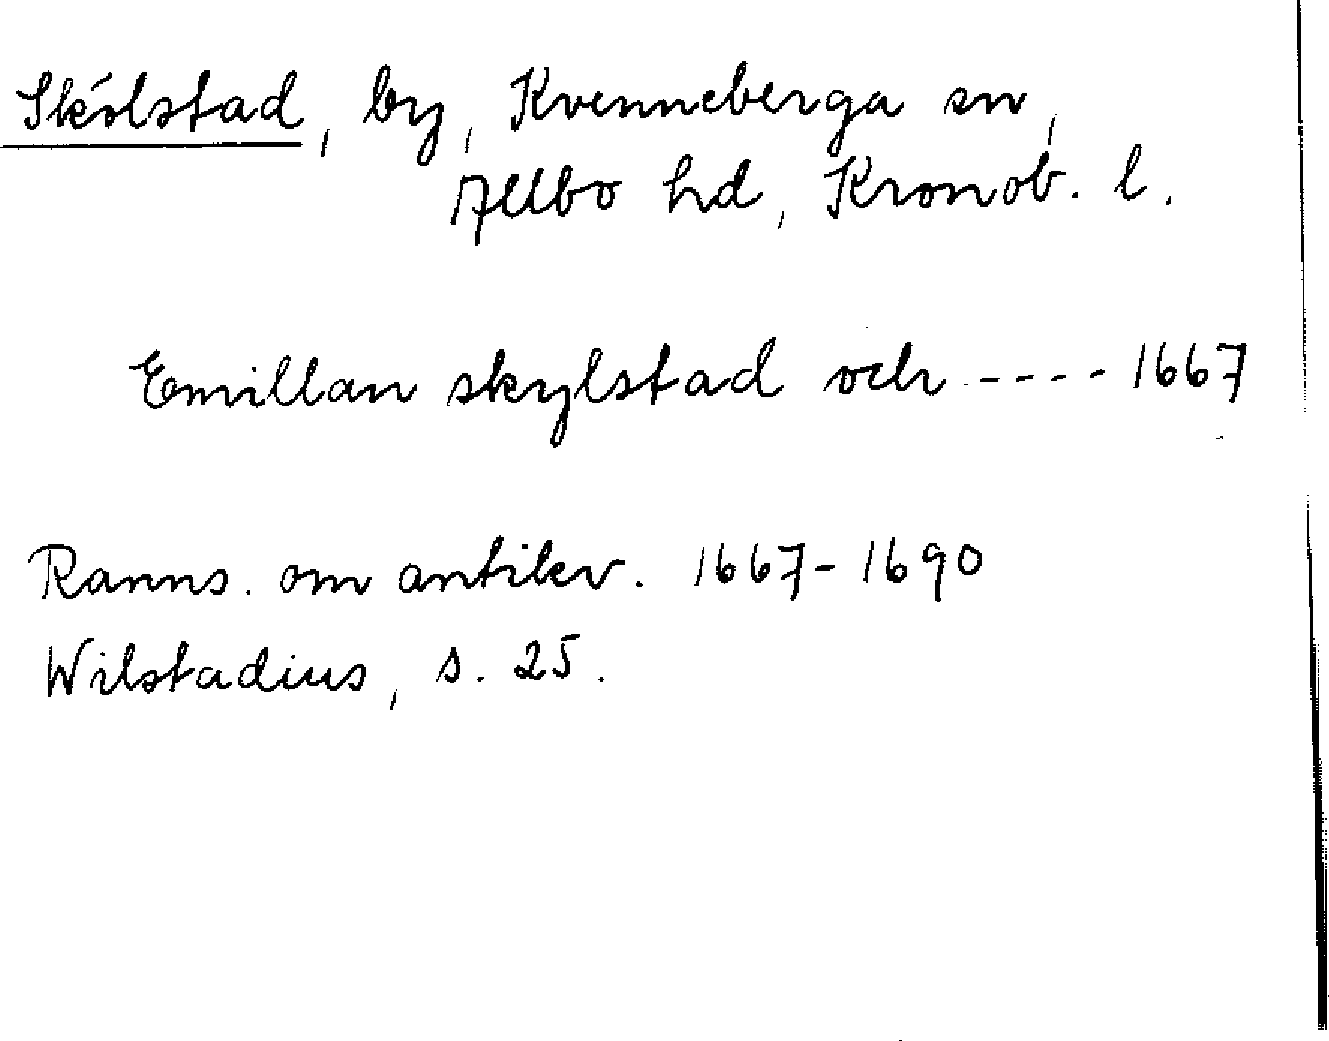 Skölstad, by, Kvenneberga sn,
Allbo hd, Kronob. l.
Emillan skylstad och ---- 1667
Ranns. om antikv. 1667-1690
Wilstadius, s. 25.